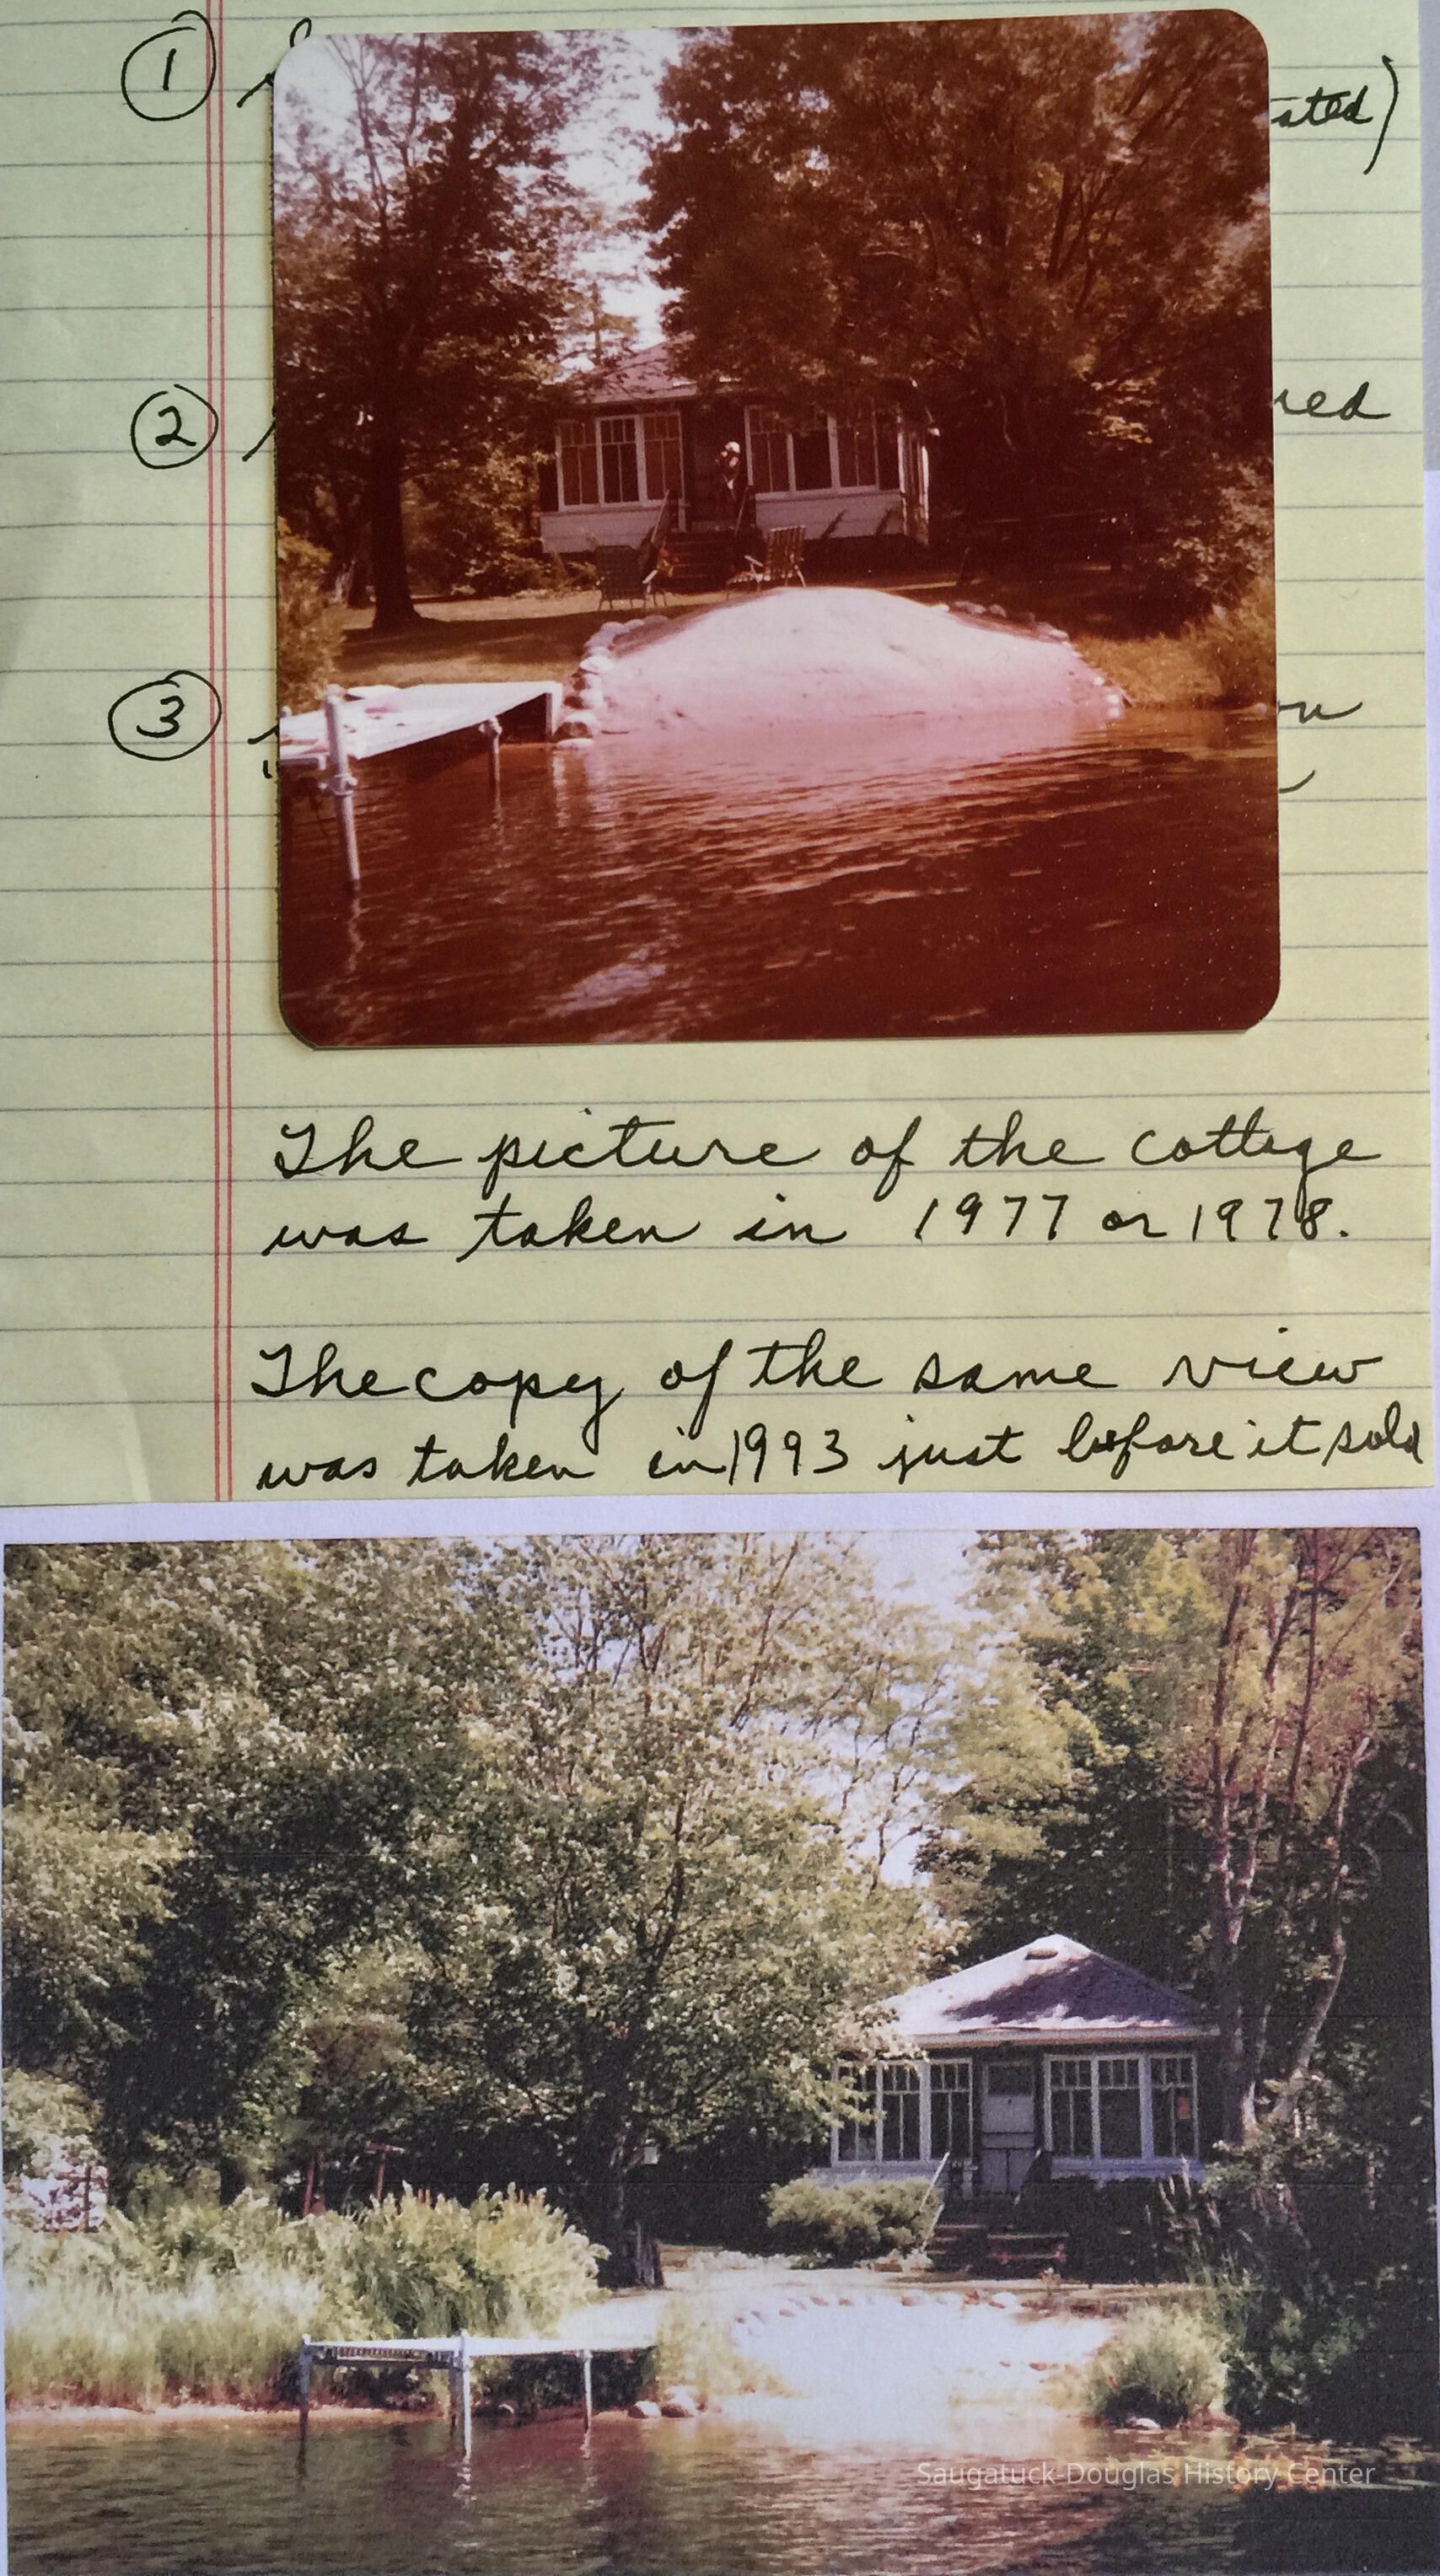 1
ated)
2
red
3
The picture of the cottage
was taken in 1977 or 1978.
The copy of the same view
was taken in 1993 just before it sold
Saugatuck-Douglas History Center